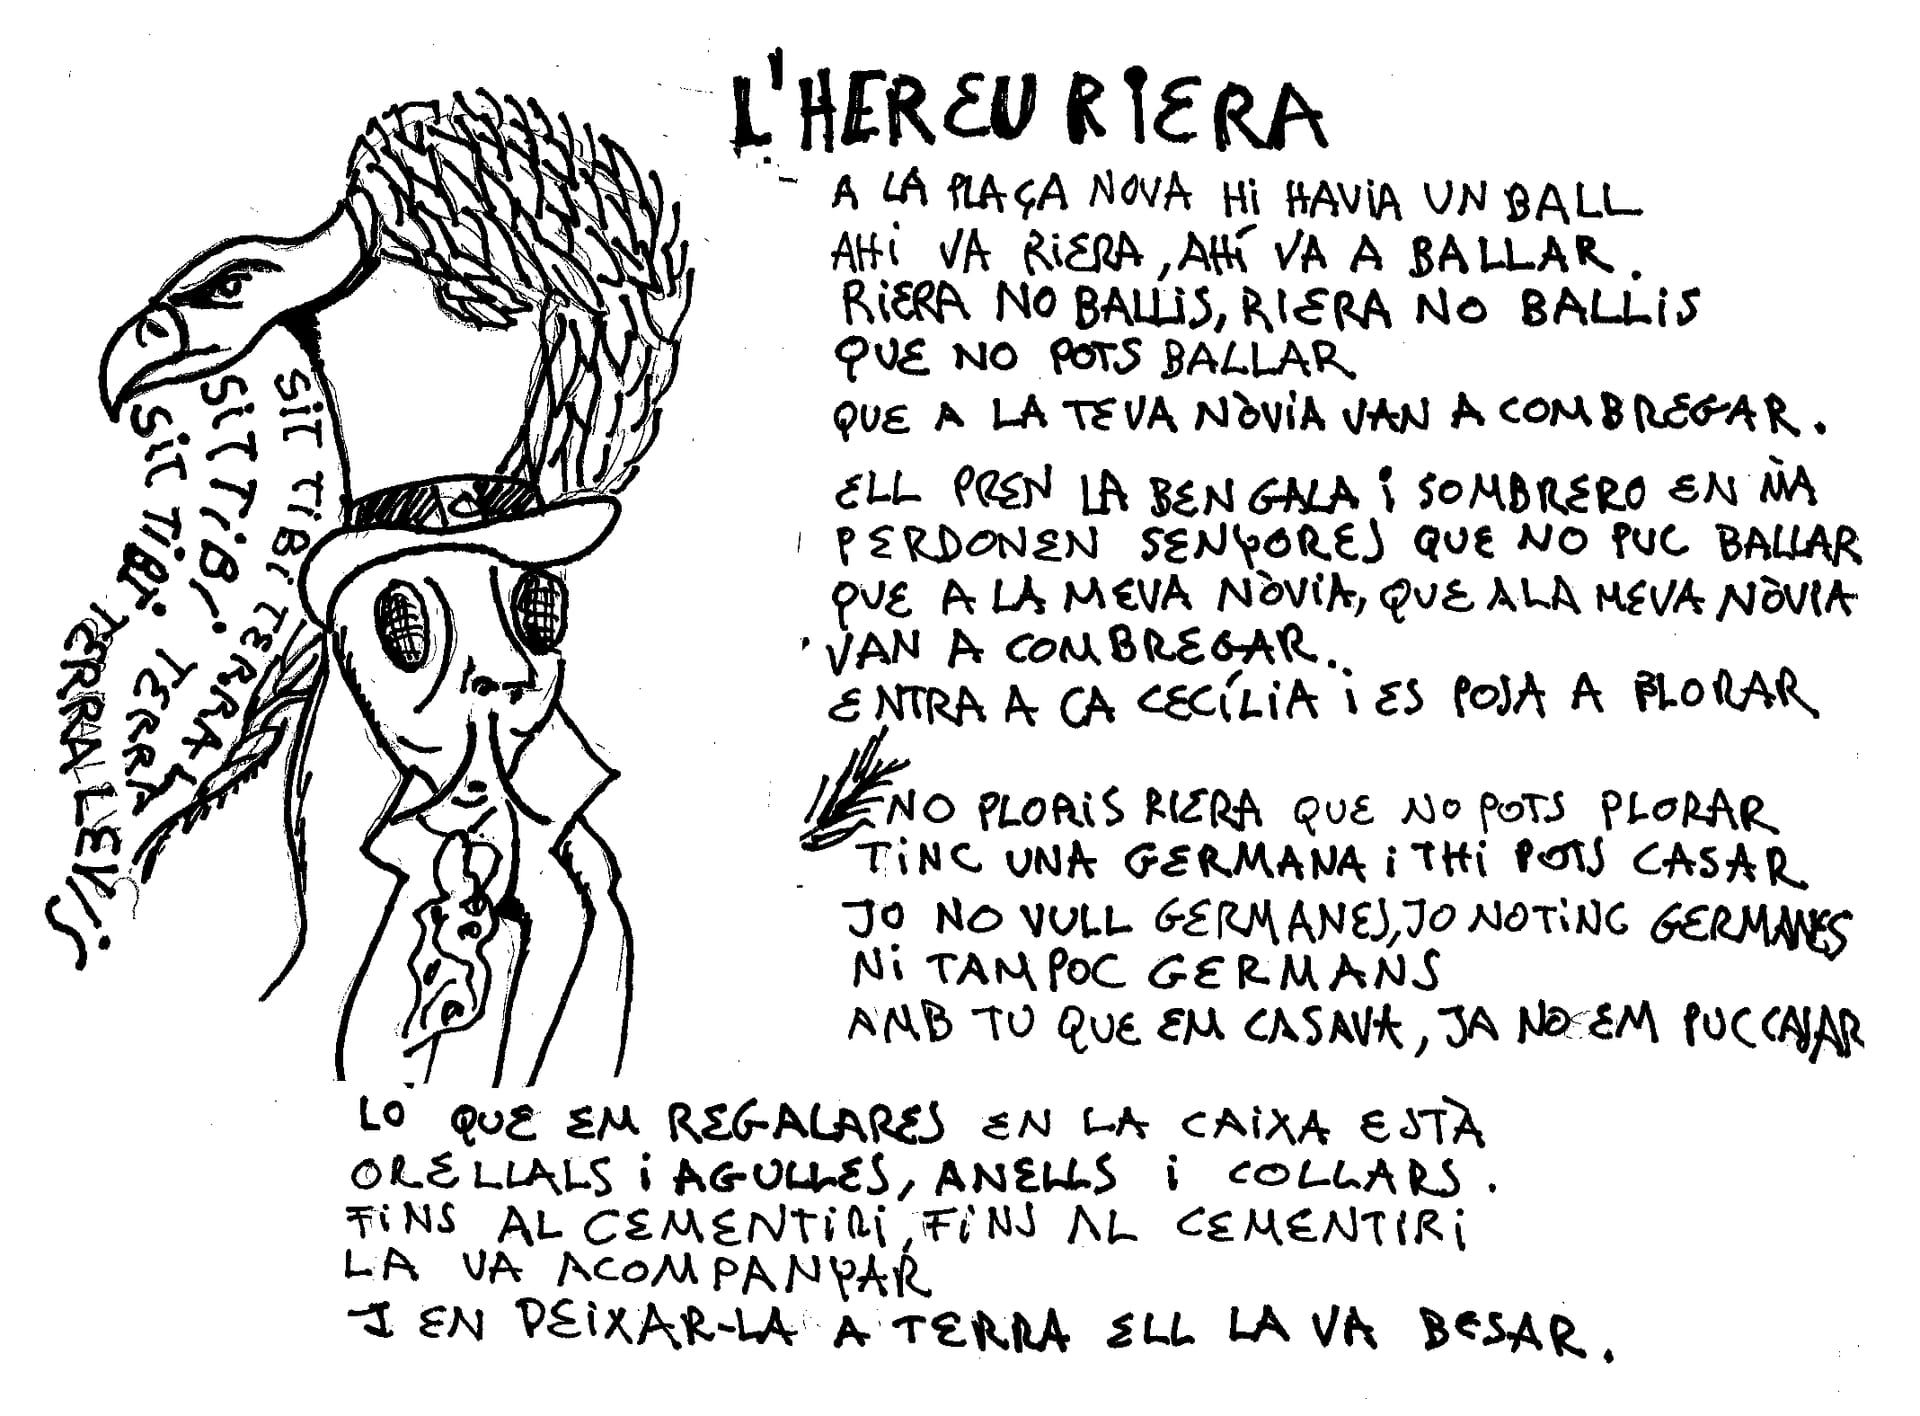 L'HEREU RIERA
A LA PLAÇA NOVA Hi HAViA UN BALL
AHi VA RiERA, AHÍ VA A BALLAR.
RiERA NO BALLiS, RIERA NO BALLiS
QUE NO POTS BALLAR
QUE A LA TEVA NÒViA VAN A COMBREGAR.
ELL PREN LA BENGALA i SOMBRERO EN MÀ
PERDONEN SENYORES QUE NO PUC BALLAR
QUE A LA MEVA NÒViA, QUE A LA MEVA NÒVIA
VAN A COMBREGAR.
ENTRA A CA CECÍLiA i ES POSA A PLORAR
NO PLORiS RIERA QUE NO POTS PLORAR
TiNC UNA GERMANA i THi POTS CASAR
JO NO VULL GERMANES, JO NO TiNC GERMANES
Ni TAMPOC GERMANS
AMB TU QUE EM CASAVA, JA NO EM PUC CASAR
LO QUE EM REGALARES EN LA CAiXA ESTÀ
ORELLALS i AGULLES, ANELLS i COLLARS.
FiNS AL CEMENTiRi, FiNS AL CEMENTiRi
LA VA ACOMPANYAR
I EN DEiXAR-LA A TERRA ELL LA VA BESAR.
SiT TiBi TERRA LEViS
SiT TiBi TERRA
SiT TiBi TERRA L